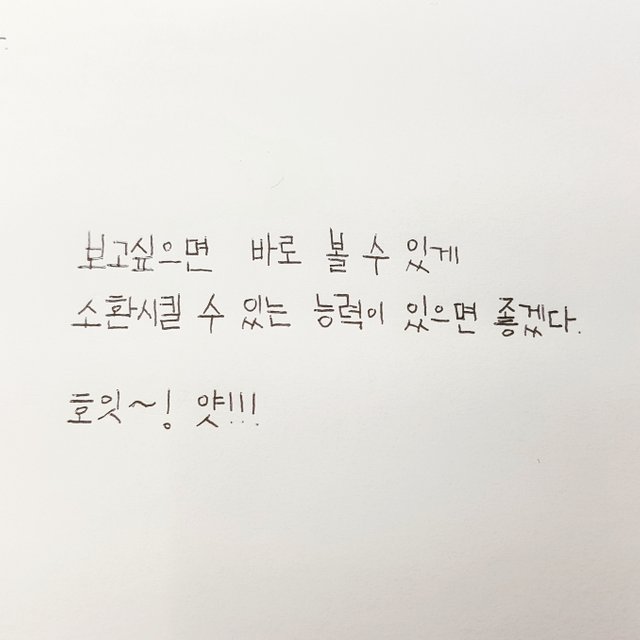 보고싶으면 바로 볼 수 있게
소환시킬 수 있는 능력이 있으면 좋겠다.
호잇~! 얏!!!